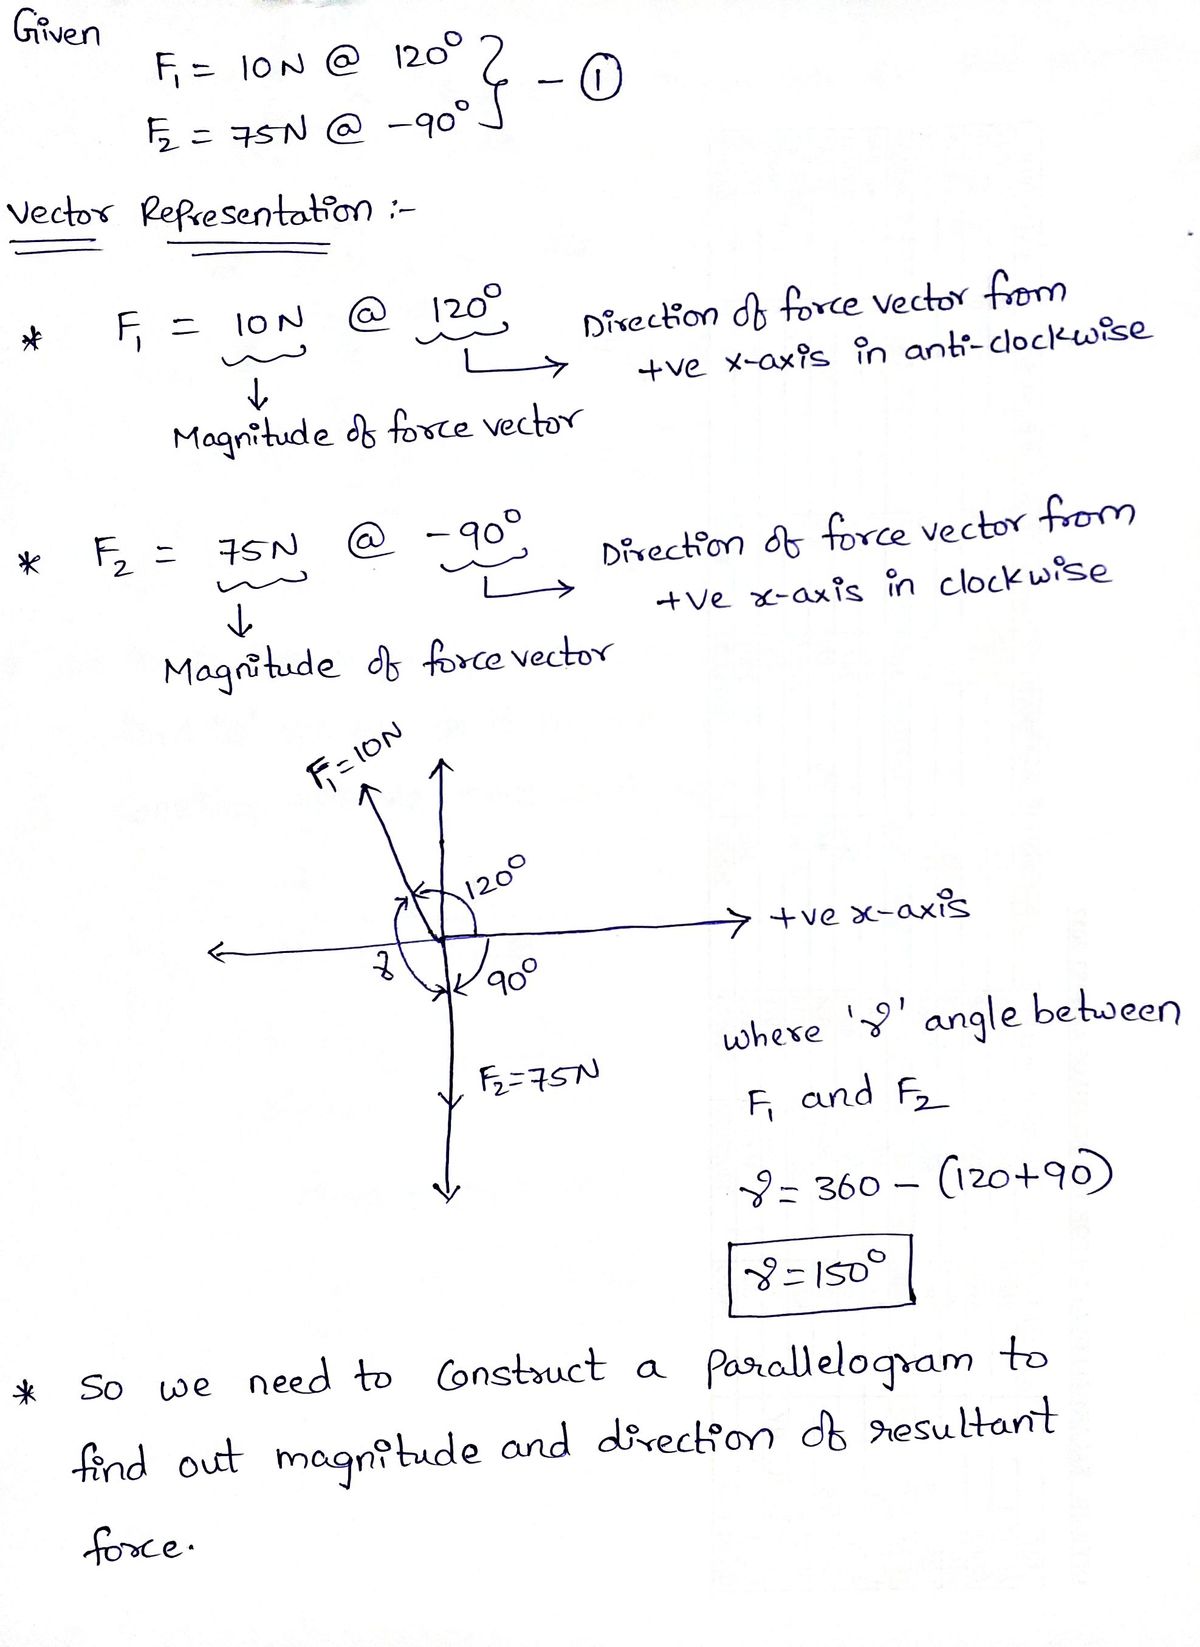 Given
F₁ = 10N @ 120°
F₂ = 75N @ -90° } - ①
Vector Representation :-
* F₁ = 10N @ 120° Direction of force vector from
+ve x-axis in anti-clockwise
Magnitude of force vector
* F₂ = 75N @ -90° Direction of force vector from
+ve x-axis in clockwise
Magnitude of force vector
F₁=10N
120°
+ve x-axis
γ
90°
where 'γ' angle between
F₂=75N
F₁ and F₂
γ = 360 - (120+90)
γ=150°
* So we need to Construct a parallelogram to
find out magnitude and direction of resultant
force.